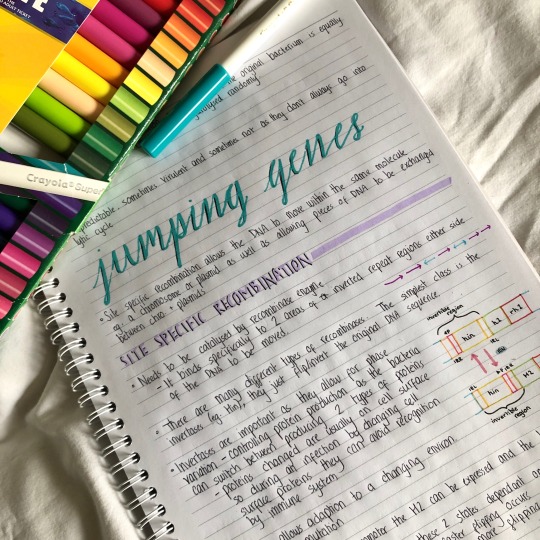 the original bacterium is equally
packaged randomly
unpredictable. sometimes virulent and sometimes not as they don't always go into
lytic cycle
jumping genes
• Site specific recombination allows the DNA to move within the same molecule
eg. a chromosome or plasmid as well as allowing pieces of DNA to be exchanged
between chro + plasmids
SITE SPECIFIC RECOMBINATION
• Needs to be catalysed by recombinase enzyme
- It binds specifically to 2 areas of inverted repeat regions either side
of the DNA to be moved.
• There are many different types of recombinases. The simplest class is the
invertases (eg. Hin), they just flip/invert the original DNA sequence.
• Invertases are important as they allow for phase
variation - controlling protein production as the bacteria
can switch between producing 2 types of proteins
- proteins changed are usually on cell surface
so during an infection by changing cell
surface proteins they can avoid recognition
by immune system
allows adaption to a changing environ.
mutation
promoter the H2 can be expressed and the
these 2 states dependant on
faster flipping occurs
more flipping
invertible
region
hin
h2
rh1
IRL
IRR
hin
H2
invertible
region
Crayola Super
ADULT TICKET